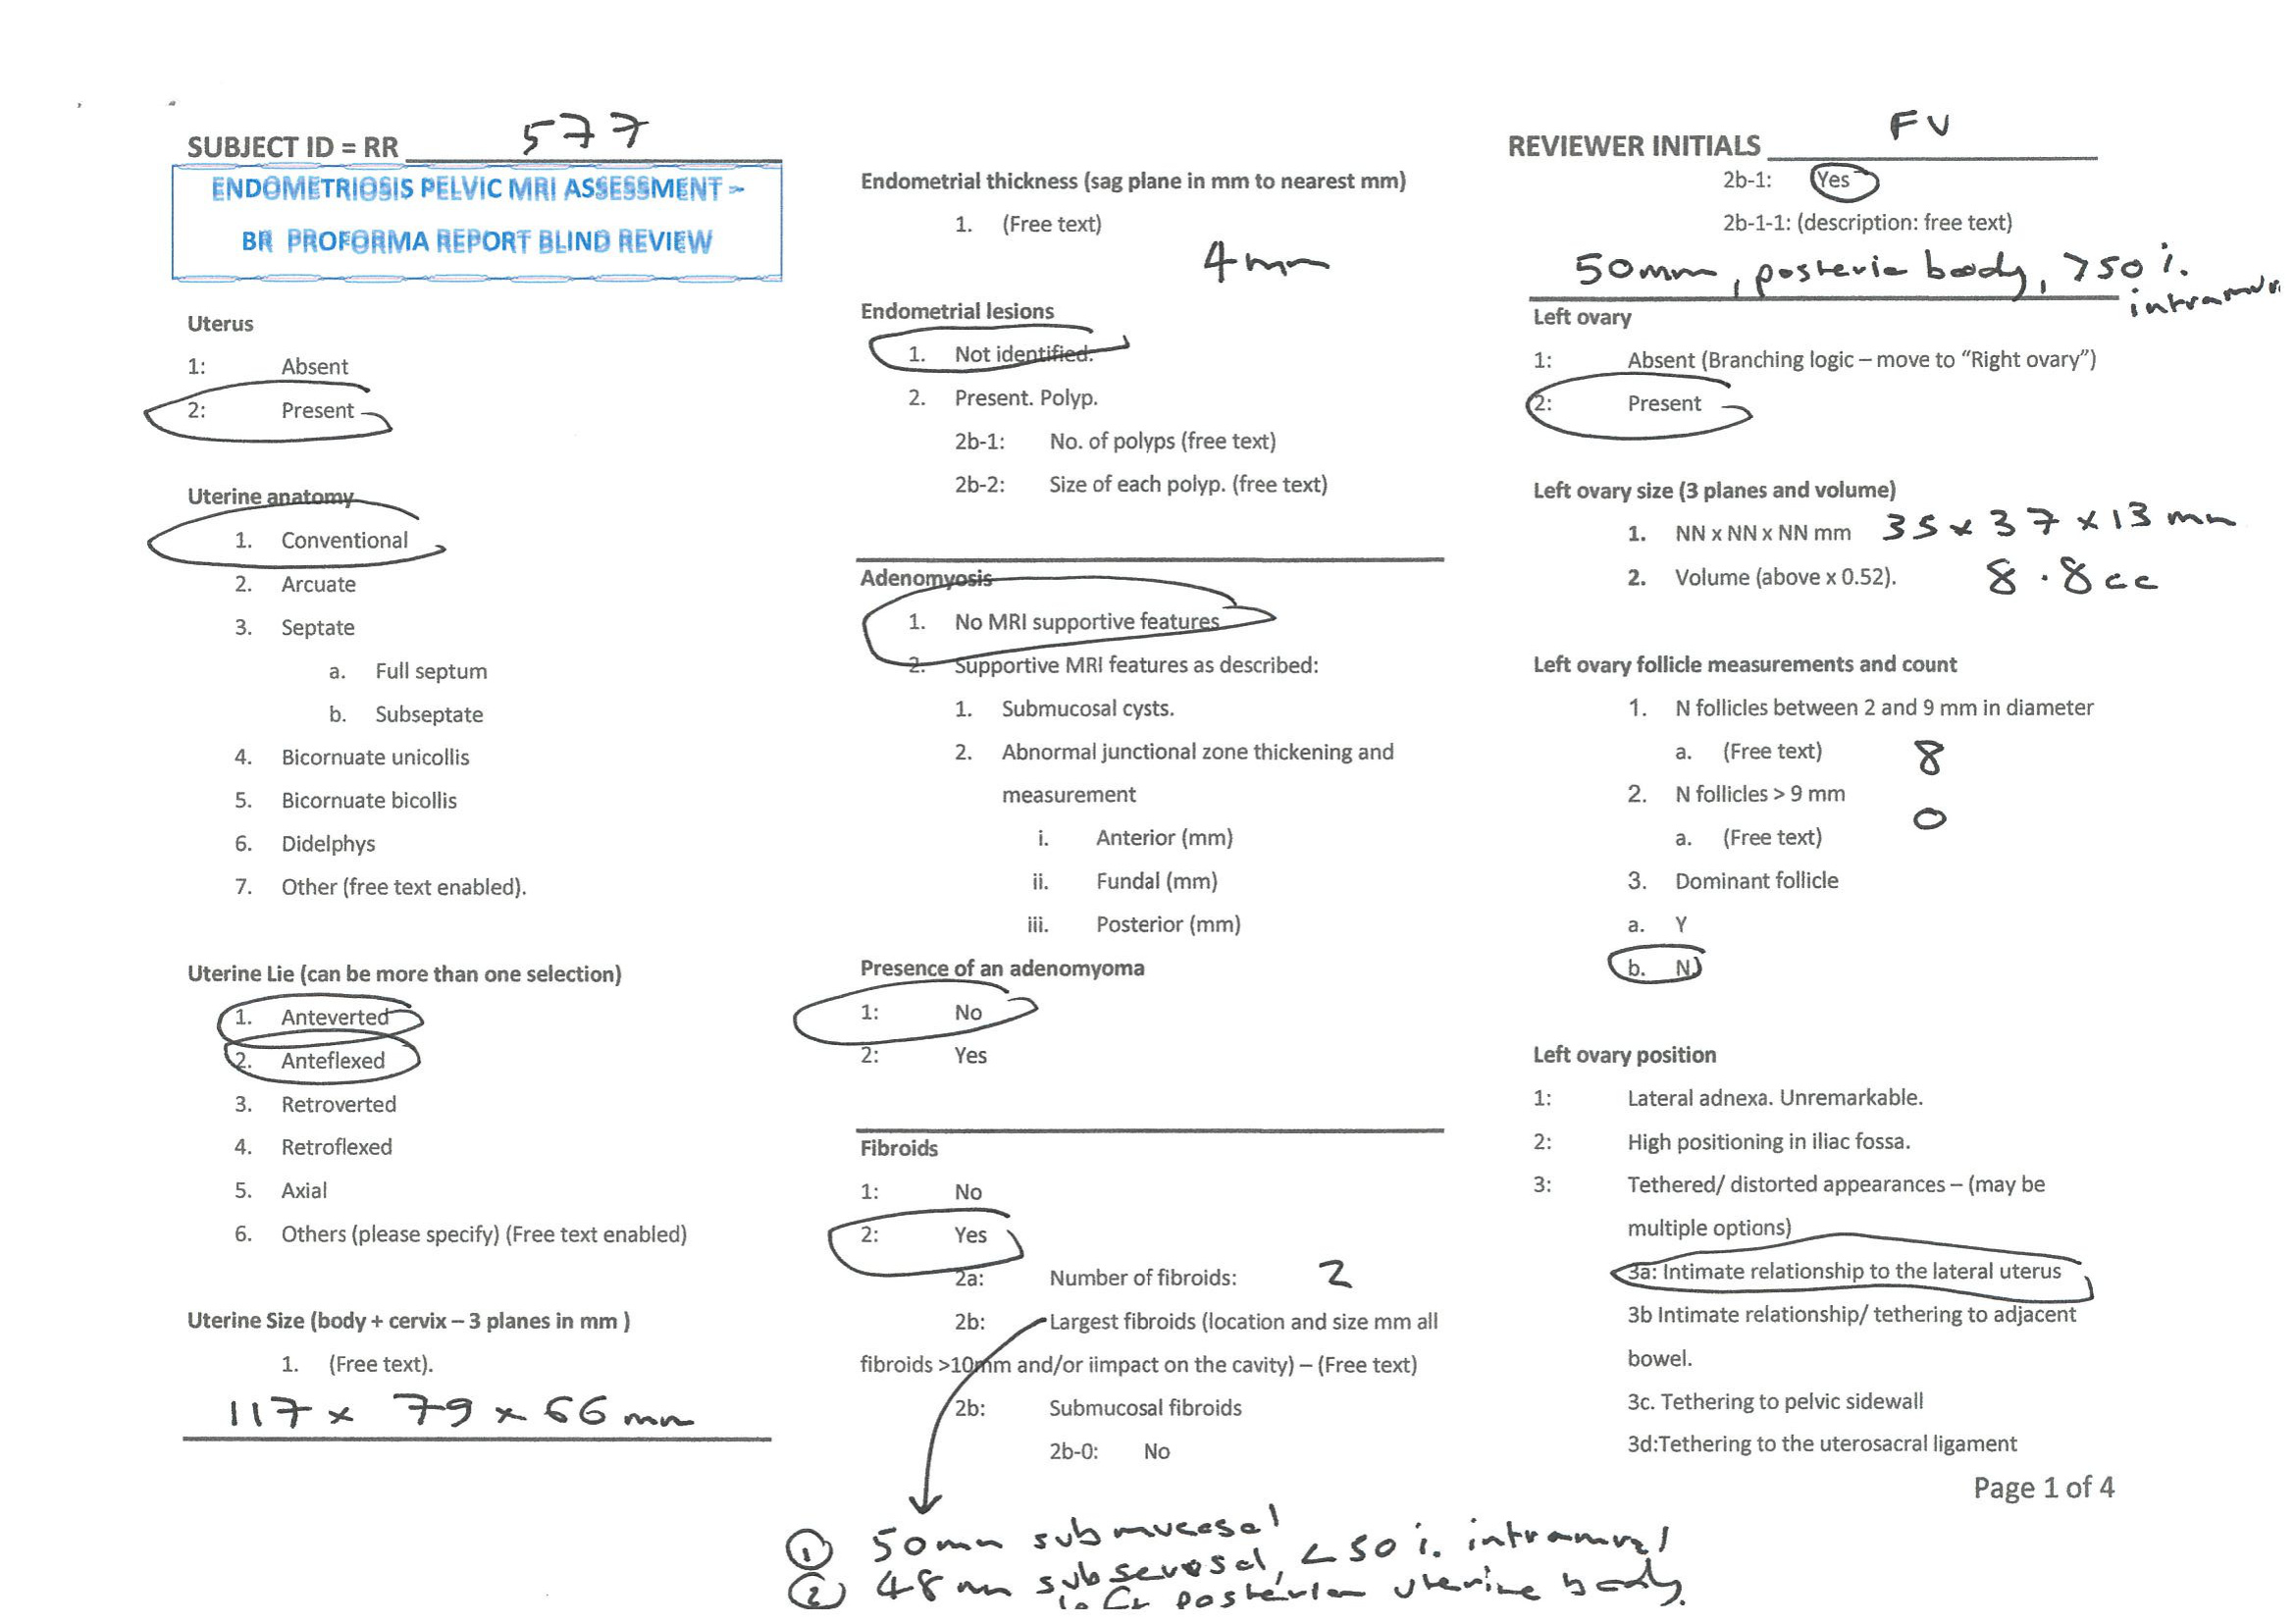 SUBJECT ID = RR 577
ENDOMETRIOSIS PELVIC MRI ASSESSMENT -
BR PROFORMA REPORT BLIND REVIEW
Uterus
1: Absent
2: Present
Uterine anatomy
1. Conventional
2. Arcuate
3. Septate
a. Full septum
b. Subseptate
4. Bicornuate unicollis
5. Bicornuate bicollis
6. Didelphys
7. Other (free text enabled).
Uterine Lie (can be more than one selection)
1. Anteverted
2. Anteflexed
3. Retroverted
4. Retroflexed
5. Axial
6. Others (please specify) (Free text enabled)
Uterine Size (body + cervix – 3 planes in mm )
1. (Free text).
117 x 79 x 66 mm
Endometrial thickness (sag plane in mm to nearest mm)
1. (Free text)
4mm
Endometrial lesions
1. Not identified.
2. Present. Polyp.
2b-1: No. of polyps (free text)
2b-2: Size of each polyp. (free text)
Adenomyosis
1. No MRI supportive features
2. Supportive MRI features as described:
1. Submucosal cysts.
2. Abnormal junctional zone thickening and
measurement
i. Anterior (mm)
ii. Fundal (mm)
iii. Posterior (mm)
Presence of an adenomyoma
1: No
2: Yes
Fibroids
1: No
2: Yes
2a: Number of fibroids: 2
2b: Largest fibroids (location and size mm all
fibroids >10mm and/or iimpact on the cavity) – (Free text)
2b: Submucosal fibroids
2b-0: No
① 50mm submucosal
② 48mm subserosal, <50%. intramural
left posterior uterine body.
REVIEWER INITIALS FV
2b-1: Yes
2b-1-1: (description: free text)
50mm, posterior body, >50%.
intramur
Left ovary
1: Absent (Branching logic – move to “Right ovary”)
2: Present
Left ovary size (3 planes and volume)
1. NN x NN x NN mm 35 x 37 x 13 mm
2. Volume (above x 0.52). 8.8cc
Left ovary follicle measurements and count
1. N follicles between 2 and 9 mm in diameter
a. (Free text) 8
2. N follicles > 9 mm
0
a. (Free text)
3. Dominant follicle
a. Y
b. N
Left ovary position
1: Lateral adnexa. Unremarkable.
2: High positioning in iliac fossa.
3: Tethered/ distorted appearances – (may be
multiple options)
3a: Intimate relationship to the lateral uterus
3b Intimate relationship/ tethering to adjacent
bowel.
3c. Tethering to pelvic sidewall
3d:Tethering to the uterosacral ligament
Page 1 of 4